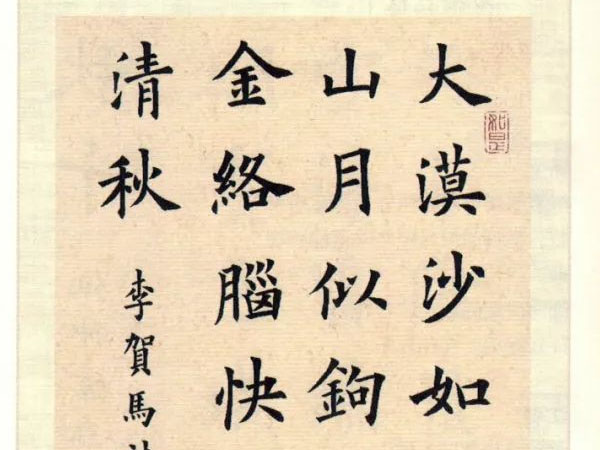 大漠沙如
山月似鉤
金絡腦快
清秋
李賀馬
如是